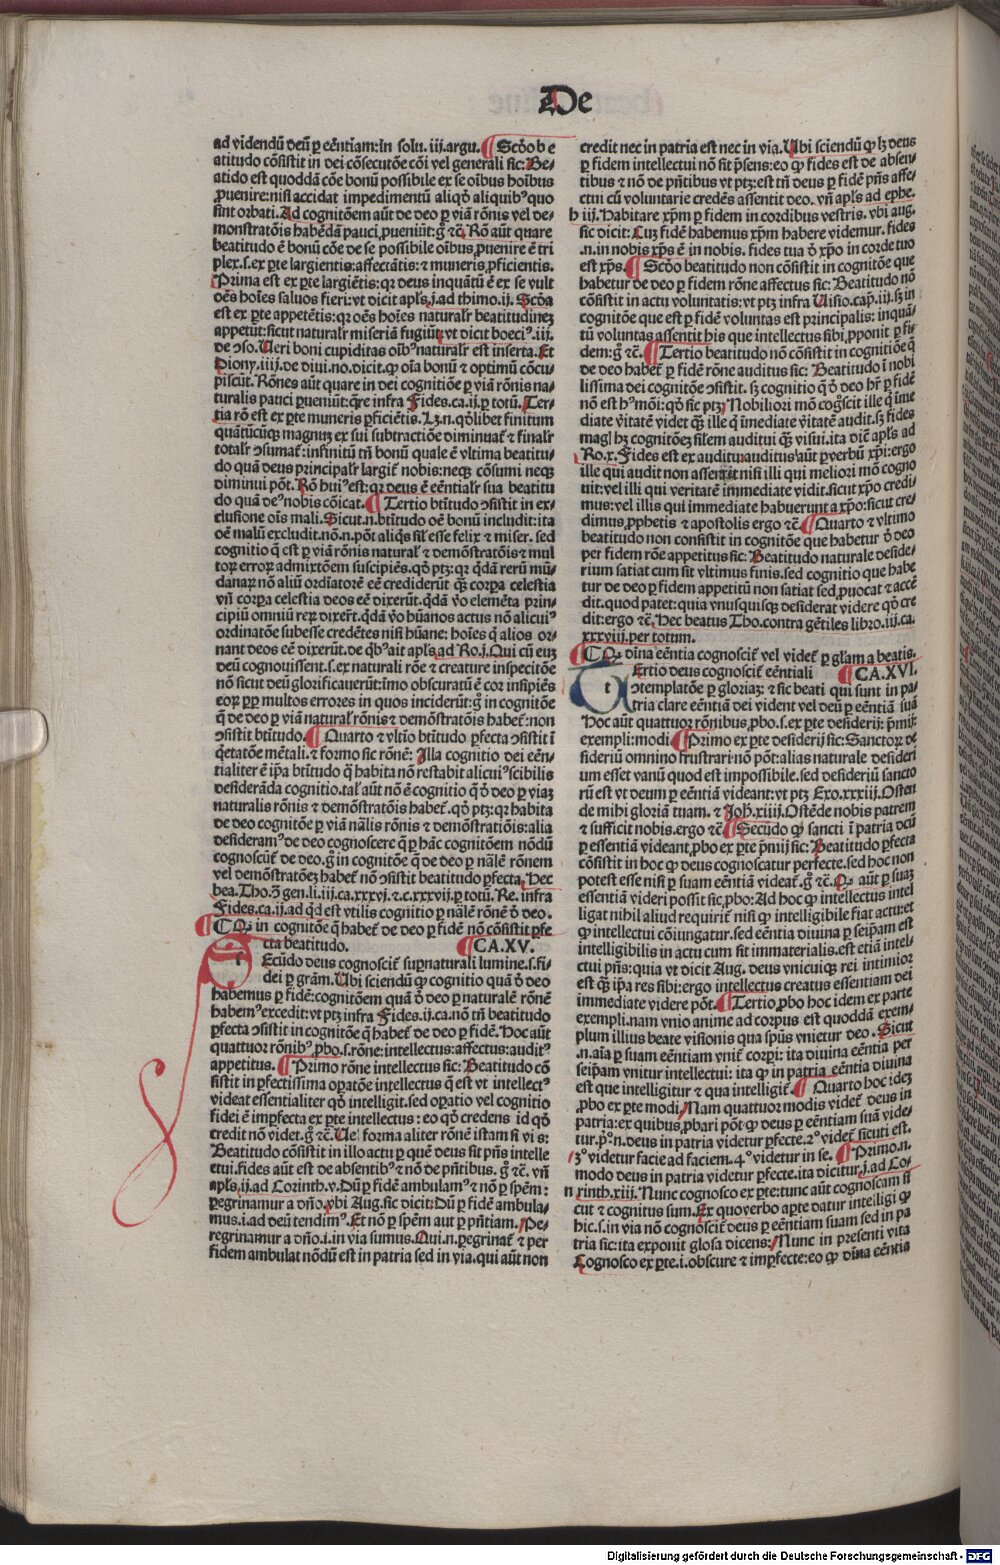 De
ad videndū deū ꝑ eēntiam: In solu. iij. argu. ¶ Scḋo be
atitudo cōsistit in dei cōsecutōe cōi vel generali sic: Be-
atido est quoddā cōe bonū possibile ex se oībus hoībus
ꝓuenire: nisi accidat impedimentū aliqḋ aliquibꝰ quo
sint orbati. Ad cognitōem aūt de deo ꝑ viā rōnis vel de-
monstratōis habēdā pauci ꝓueniūt: g̃ ⁊c̄. Rō aūt quare
beatitudo ē bonū cōe de se possibile oībus ꝓuenire ē tri
plex. s. ex ꝑte largientis: affectātis: ⁊ muneris ꝓficientis.
Prima est ex ꝑte largiētis: qꝛ deus inquātū ē ex se vult
oēs hoīes saluos fieri: vt dicit apl̄s. j. ad thimo. ij. Scḋa
est ex ꝑte appetētis: qꝛ oēs hoīes naturalr̄ beatitudineꝫ
appetūt: sicut naturalr̄ miseriā fugiūt: vt dicit boeciꝰ. iij.
de ↄso. Ueri boni cupiditas oībꝰ naturalr̄ est inserta. Et
Diony. iiij. de diui. no. dicit. ꝙ oīa bonū ⁊ optimū cōcu
piscūt. Rōnes aūt quare in dei cognitiōe ꝑ viā rōnis na-
turalis pauci ꝑueniūt: q̄re infra Fides. ca. ij. ꝑ totū. Ter-
tia rō est ex ꝑte muneris ꝑficiētis. Lꝫ. n. qḋlibet finitum
quātūcūqꝫ magnuꝫ ex sui subtractiōe diminuat᷑ ⁊ finalr̄
totalr̄ ↄsumat᷑: infinitū tn̄ bonū quale ē vltima beatitu-
do quā deus principalr̄ largit᷑ nobis: neqꝫ cōsumi neqꝫ
diminui pōt. Rō huiꝰ est: qꝛ deus ē eēntialr̄ sua beatitu
do quā deꝰ nobis cōicat. ¶ Tertio bt̄itudo ↄsistit in ex-
clusione oīs mali. Sicut. n. bt̄itudo oē bonū includit: ita
oē malū excludit. nō. n. pōt aliq̄s sil̄ esse felix ⁊ miser. sed
cognitio q̄ est ꝑ viā rōnis natural᷑ ⁊ demōstratōis ⁊ mul
toꝝ erroꝝ admixtōem suscipiēs. qḋ ptꝫ: qꝛ qḋā rerū mū-
danaꝝ nō aliū ordiatorē eē crediderūt q̄ꝫ corꝑa celestia
vn̄ corꝑa celestia deos eē dixerūt. qḋā ꝟo elemēta prin-
cipiū omniū reꝝ dixert̄. qḋā ꝟo hūanos actus nō alicuiꝰ
ordinatōe subesse credētes nisi hūane: hoīes q̄ alios or-
nant deos eē dixerūt. de q̇bꝰ ait apl̄s ad Ro. j. Qui cū euꝫ
deū cognouissent. s. ex naturali rōe ⁊ creature inspecitōe
nō sicut deū glorificauerūt: imo obscuratū ē cor insipiēs
eoꝝ ꝓpꝛ multos errores in quos inciderūt: g̃ in cognitōe
q̄ de deo ꝑ viā natural᷑ rōnis ⁊ demōstratōis habet᷑: non
ↄsistit bt̄itudo. ¶ Quarto ⁊ vltīo bt̄itudo ꝑfecta ↄsistit ī
q̇etatōe mētali. ⁊ formo sic rōnē: Illa cognitio dei eēn-
tialiter ē ip̄a bt̄itudo q̄ habita nō restabit alicuiꝰ scibilis
desiderāda cognitio. tal᷑ aūt nō ē cognitio q̄ ꝺ̄ deo ꝑ viaꝫ
naturalis rōnis ⁊ demōstratōis habet᷑. qḋ ptꝫ: qꝛ habita
de deo cognitōe ꝑ viā nālis rōnis ⁊ demōstratiōis: alia
desideramꝰ de deo cognoscere q̄ ꝑ hāc cognitōem nōdū
cognoscūt᷑ de deo. g̃ in cognitōe q̄ de deo ꝑ nālē rōnem
vel demōstratōeꝫ habet᷑ nō ↄsistit beatitudo ꝑfecta. Hec
bea. Tho. ↄ̄ gen. li. iij. ca. xxxvi. ⁊. c. xxxvij. ꝑ totū. Re. infra
Fides. ca. ij. ad q̇d est vtilis cognitio ꝑ nālē rōnē ꝺ̄ deo.
¶ Qꝙ in cognitōe q̄ habet᷑ de deo ꝑ fidē nō cōsistit ꝑfe
cta beatitudo. ¶ CA. XV.
Ecūdo deus cognoscit᷑ suꝑnaturali lumine. s. fi-
dei ꝑ grām. Ubi sciendū ꝙ cognitio quā ꝺ̄ deo
habemus ꝑ fidē: cognitōem quā ꝺ̄ deo ꝑ naturalē rōnē
habemꝰ excedit: vt ptꝫ infra Fides. ij. ca. nō tn̄ beatitudo
ꝑfecta ↄsistit in cognitōe q̄ habet᷑ de deo ꝑ fidē. Hoc aūt
quattuor rōnibꝰ ꝓbo. s. rōne: intellectus: affectus: auditꝰ
appetitus. ¶ Primo rōne intellectus sic: Beatitudo cō
sistit in ꝑfectissima oꝑatōe intellectus q̄ est vt intellectꝰ
videat essentialiter qḋ intelligit. sed oꝑatio vel cognitio
fidei ē imꝑfecta ex ꝑte intellectus: eo qḋ credens id qḋ
credit nō videt. g̃ ⁊c̄. Uel forma aliter rōnē istam si vis:
Beatitudo cōsistit in illo actu ꝑ quē deus sit pn̄s intelle
ctui. fides aūt est de absentibꝰ ⁊ nō de pn̄tibus. g̃ ⁊c̄. vn̄
apl̄s. ij. ad Corinth. v. Dū ꝑ fidē ambulamꝰ ⁊ nō ꝑ spēm:
ꝑegrinamur a dn̄o. vbi Aug. sic dicit: Dū ꝑ fidē ambula-
mus. i. ad deū tendimꝰ. Et nō ꝑ spēm aut ꝑ pn̄tiam. Pe-
regrinamur a dn̄o. i. in via sumus. Qui. n. ꝑegrinat᷑ ⁊ per
fidem ambulat nōdū est in patria sed in via. qui aūt non
credit nec in patria est nec in via. Ubi sciendū ꝙ lꝫ deus
ꝑ fidem intellectui nō sit p̄sens: eo ꝙ fides est de absen-
tibus ⁊ nō de pn̄tibus vt ptꝫ: est tn̄ deus ꝑ fidē pn̄s affe-
ctui cū voluntarie credēs assentit deo. vn̄ apl̄s ad ephe.
b iij. Habitare xp̄m ꝑ fidem in cordibus vestris. vbi aug.
sic dicit: Cuꝫ fidē habemus xp̄m habere videmur. fides
.n. in nobis xp̄s ē in nobis. fides tua ꝺ̄ xp̄o in corde tuo
est xp̄s. ¶ Scḋo beatitudo non cōsistit in cognitōe que
habetur de deo ꝑ fidem rōne affectus sic: Beatitudo nō
cōsistit in actu voluntatis: vt ptꝫ infra Uisio. cap̄. iij. sꝫ in
cognitōe que est ꝑ fidē voluntas est principalis: inquā-
tū voluntas assentit his que intellectus sibi ꝓponit ꝑ fi-
dem: g̃ ⁊c̄. ¶ Tertio beatitudo nō cōsistit in cognitiōe q̄
de deo habet᷑ ꝑ fidē rōne auditus sic: Beatitudo ī nobi
lissima dei cognitōe ↄsistit. sꝫ cognitio q̄ ꝺ̄ deo hr̄ ꝑ fidē
nō est hꝰ mōi: qḋ sic ptꝫ: Nobiliori mō cog̊scit ille q̇ ime
diate ꝟitatē videt q̄ꝫ ille q̇ īmediate ꝟitatē audit. sꝫ fides
mag᷑ hꝫ cognitōeꝫ silem auditui q̄ꝫ visui. ita diē apl̄s ad
Ro. x. Fides est ex auditu: auditus aūt ꝑ verbū xp̄i: ergo
ille qui audit non assentit nisi illi qui meliori mō cogno
uit: vel illi qui veritatē immediate vidit. sicut xp̄o credi-
mus: vel illis qui immediate habuerunt a xp̄o: sicut cre
dimus ꝓphetis ⁊ apostolis ergo ⁊c̄. ¶ Quarto ⁊ vltimo
beatitudo non consistit in cognitōe que habetur ꝺ̄ deo
per fidem rōe appetitus sic: Beatitudo naturale deside-
rium satiat cum sit vltimus finis. sed cognitio que habe
tur de deo ꝑ fidem appetitū non satiat sed ꝓuocat ⁊ accē
dit. quod patet: quia vnusquisqꝫ desiderat videre qḋ cre
dit: ergo ⁊c̄. Hec beatus Tho. contra gētiles libro. iij. ca.
xxxviij. per totum.
¶ Qꝙ dīna eēntia cognoscit᷑ vel videt᷑ ꝑ gl̄am a beatis.
Ertio deus cognoscit᷑ eēntiali ¶ CA. XVI.
ↄtemplatōe ꝑ gloriaꝫ: ⁊ sic beati qui sunt in pa-
tria clare eēntiā dei vident vel deū ꝑ eēntiā suā
Hoc aūt quattuor rōnibus ꝓbo. s. ex ꝑte desiderij: p̄mij:
exempli: modi. ¶ Primo ex ꝑte desiderij sic: Sanctoꝝ de
sideriū omnino frustrari nō pōt: alias naturale desideri
um esset vanū quod est impossibile. sed desideriū sancto
rū est vt deum ꝑ eēntiā videant: vt ptꝫ Exo. xxxiij. Osten
de mihi gloriā tuam. ⁊ Joh̄. xiiij. Ostēde nobis patrem
⁊ sufficit nobis. ergo ⁊c̄. ¶ Secūdo ꝙ sancti ī patria deū
ꝑ essentiā videant ꝓbo ex ꝑte p̄mij sic: Beatitudo ꝑfecta
cōsistit in hoc ꝙ deus cognoscatur perfecte. sed hoc non
potest esse nisi ꝑ suam eēntiā videat᷑. g̃ ⁊c̄. Qꝙ aūt ꝑ suaꝫ
essentiā videri possit sic ꝓbo: Ad hoc ꝙ intellectus intel
ligat nihil aliud requirit᷑ nisi ꝙ intelligibile fiat actu: et
ꝙ intellectui cōiungatur. sed eēntia diuina ꝑ seip̄am est
intelligibilis in actu cum sit immaterialis. est etiā intel-
ctui pn̄s: quia vt dicit Aug. deus vnicuiqꝫ rei intimior
est q̄ꝫ ip̄a res sibi: ergo intellectus creatus essentiam dei
immediate videre pōt. ¶ Tertio ꝓbo hoc idem ex parte
exempli. nam vnio anime ad corpus est quoddā exem-
plum illius beate visionis qua sp̄us vnietur deo. Sicut
.n. aīa ꝑ suam eēntiam vnit᷑ corꝑi: ita diuina eēntia per
seip̄am vnitur intellectui: ita ꝙ in patria eēntia diuina
est que intelligitur ⁊ qua intelligit᷑. ¶ Quarto hoc ideꝫ
ꝓbo ex ꝑte modi. Nam quattuor modis videt᷑ deus in
patria: ex quibus ꝓbari pōt ꝙ deus ꝑ eēntiam suā vide-
tur. p̊. n. deus in patria videtur ꝑfecte. 2º videt᷑ sicuti est.
3º videtur facie ad faciem. 4º videtur in se. ¶ Primo. n.
modo deus in patria videtur ꝑfecte. ita dicitur. j. ad Co-
n rinth. xiij. Nunc cognosco ex ꝑte: tunc aūt cognoscam si
cut ⁊ cognitus sum. Ex quo verbo aꝑte datur intelligi ꝙ
hic. s. in via nō cognoscit᷑ deus ꝑ eēntiam suam sed in pa
tria sic: ita exponit glosa dicens: Nunc in presenti vita
Cognosco ex ꝑte. i. obscure ⁊ imꝑfecte: eo ꝙ dīna eēntia
Digitalisierung gefördert durch die Deutsche Forschungsgemeinschaft - DFG